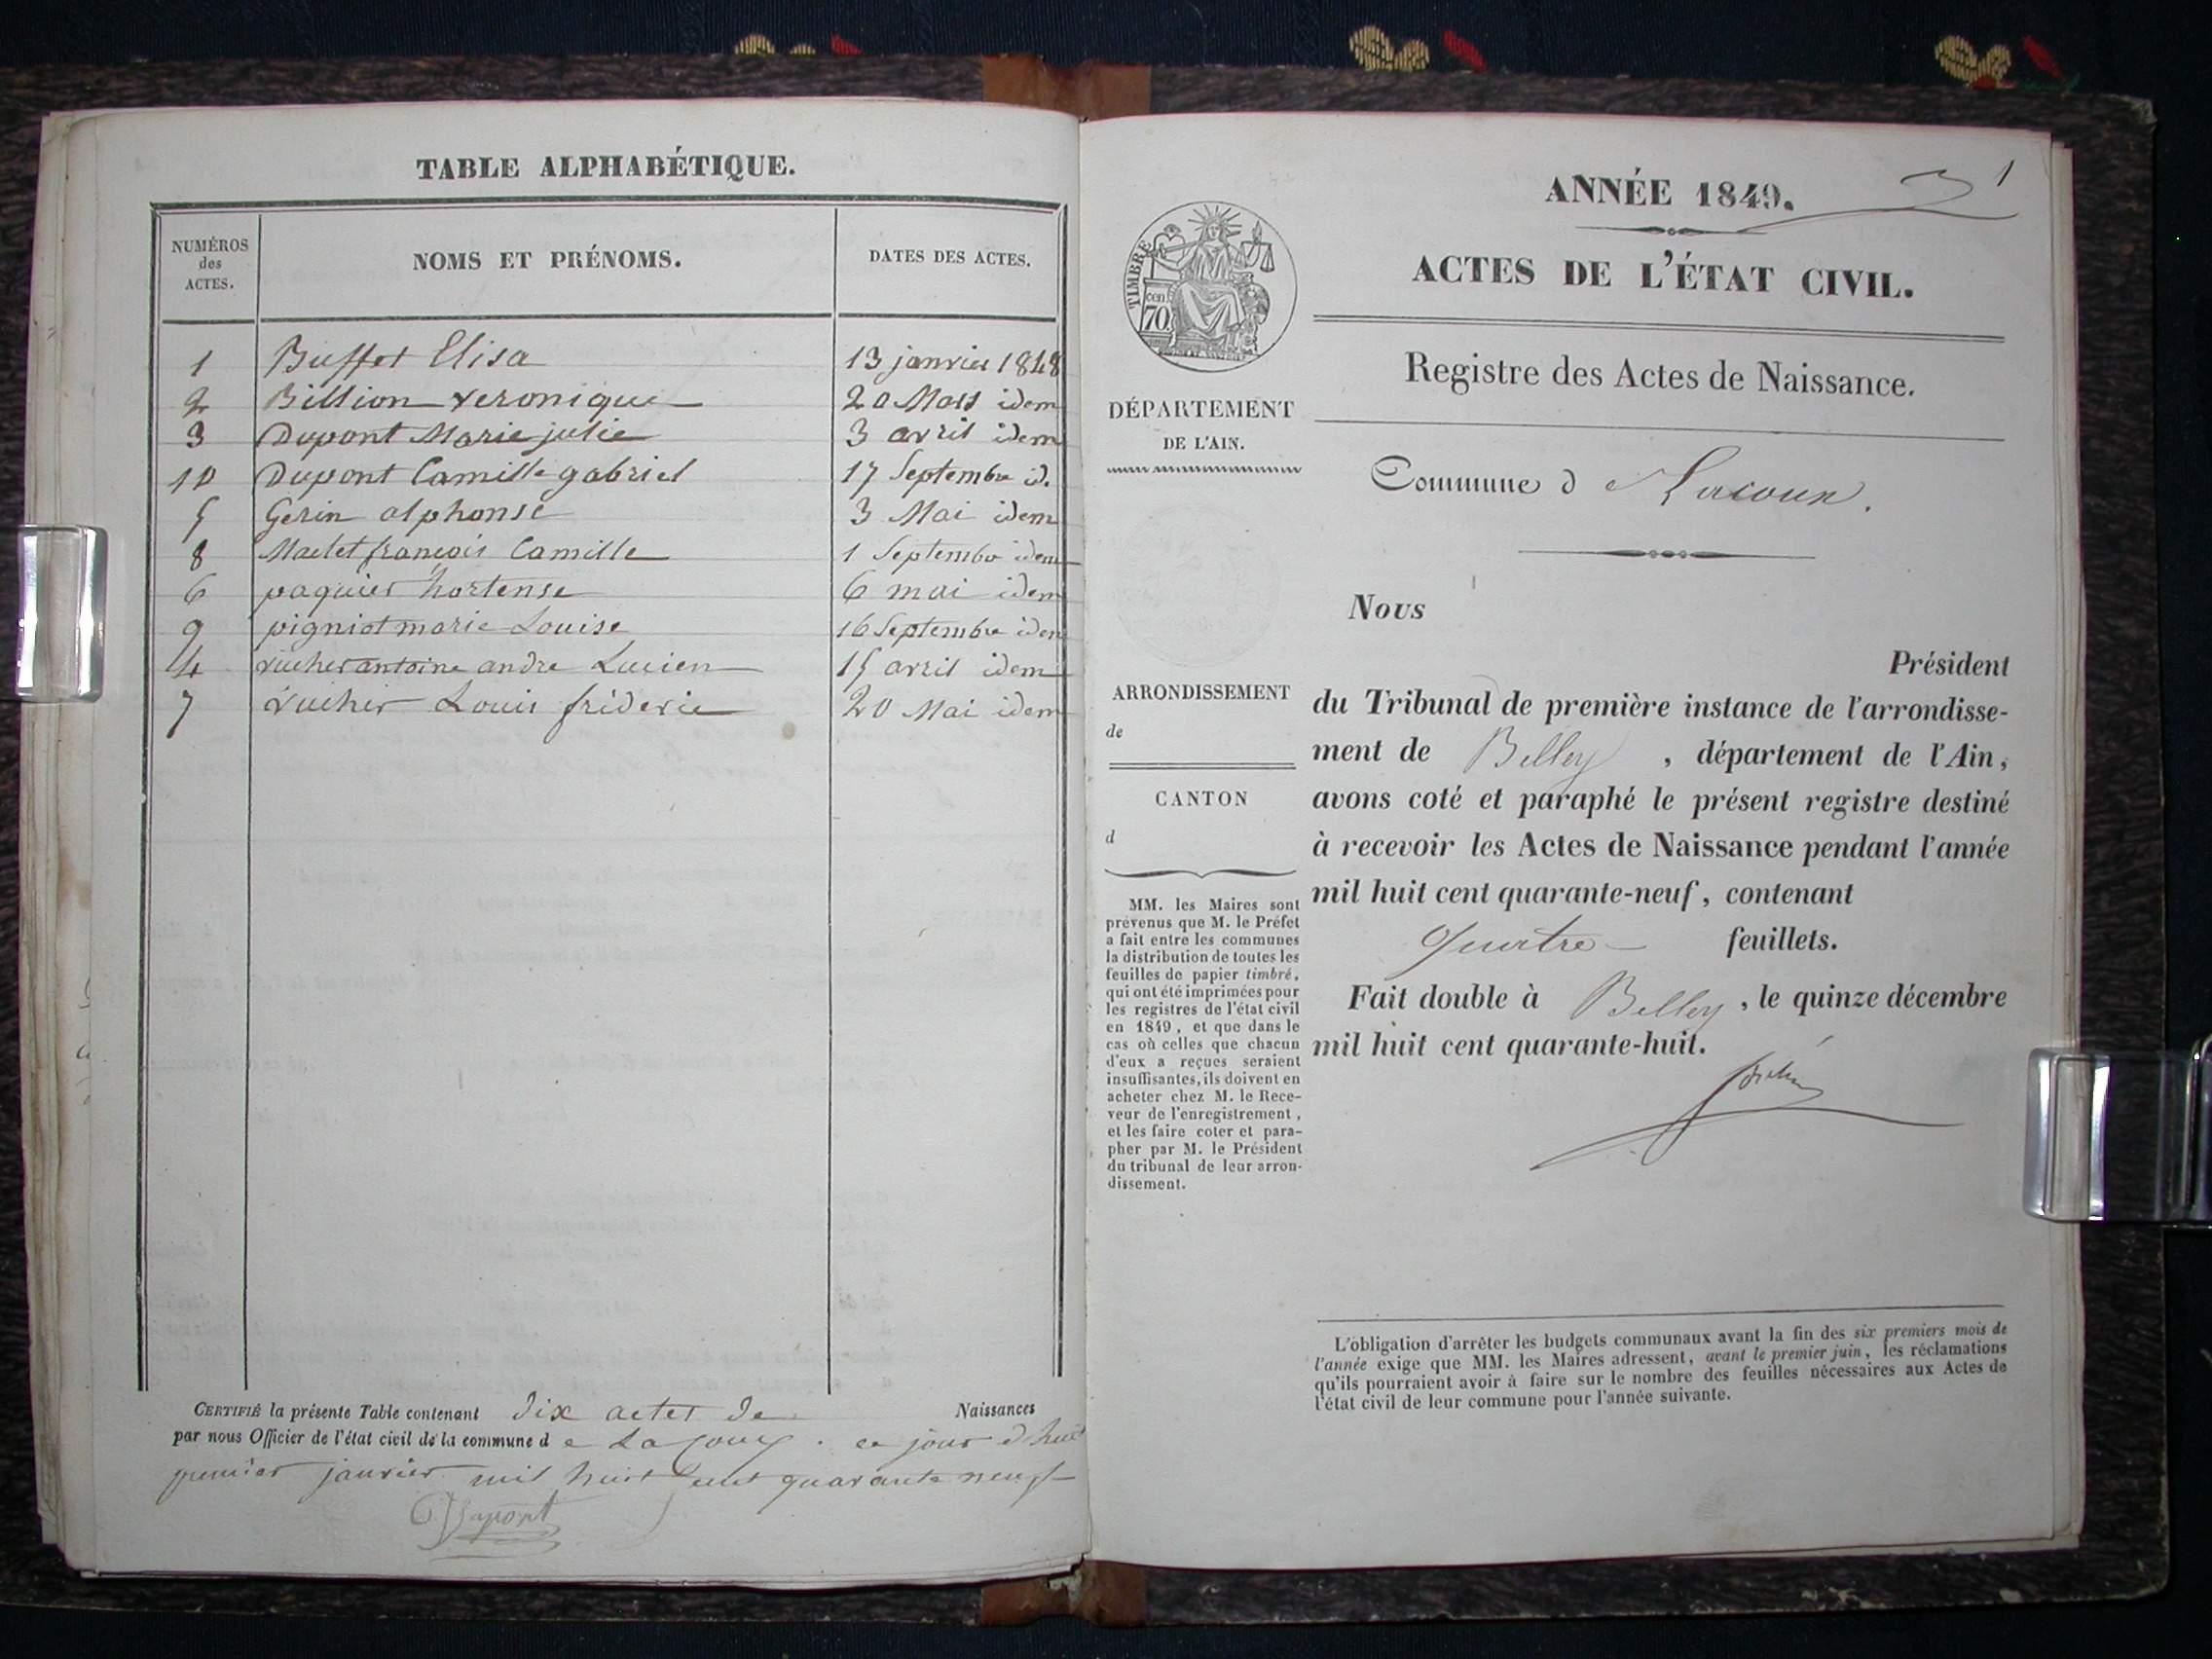 TABLE ALPHABÉTIQUE.
NUMÉROS des ACTES. NOMS ET PRÉNOMS. DATES DES ACTES.
1 Buffet Elisa 13 janvier 1848
2 Billion veronique 20 Mars idem
3 Dupont Marie julie 3 avril idem
10 Dupont Camille gabriel 17 Septembre id.
5 Gerin alphonse 3 Mai idem
8 françois Camille 1 Septembre idem
6 paquier hortense 6 mai idem
9 pigniot marie Louise 16 Septembre idem
4 antoine andre Lucien 15 avril idem
7 Louis fréderic 20 Mai idem
CERTIFIÉ la présente Table contenant dix actes de Naissances
par nous Officier de l'état civil de la commune d e Lacoux. ce jour d'hui
premier janvier mil huit cent quarante neuf
Dupont
1
ANNÉE 1849.
ACTES DE L'ÉTAT CIVIL.
Registre des Actes de Naissance.
Commune d e Lacoux.
TIMBRE
70 cen.
DÉPARTEMENT
DE L'AIN.
ARRONDISSEMENT
de
CANTON
d
MM. les Maires sont
prévenus que M. le Préfet
a fait entre les communes
la distribution de toutes les
feuilles de papier timbré,
qui ont été imprimées pour
les registres de l'état civil
en 1849, et que dans le
cas où celles que chacun
d'eux a reçues seraient
insuffisantes, ils doivent en
acheter chez M. le Rece-
veur de l'enregistrement,
et les faire coter et para-
pher par M. le Président
du tribunal de leur arron-
dissement.
Nous
Président
du Tribunal de première instance de l'arrondisse-
ment de Belley, département de l'Ain,
avons coté et paraphé le présent registre destiné
à recevoir les Actes de Naissance pendant l'année
mil huit cent quarante-neuf, contenant
quatre feuillets.
Fait double à Belley, le quinze décembre
mil huit cent quarante-huit.
L'obligation d'arrêter les budgets communaux avant la fin des six premiers mois de
l'année exige que MM. les Maires adressent, avant le premier juin, les réclamations
qu'ils pourraient avoir à faire sur le nombre des feuilles nécessaires aux Actes de
l'état civil de leur commune pour l'année suivante.